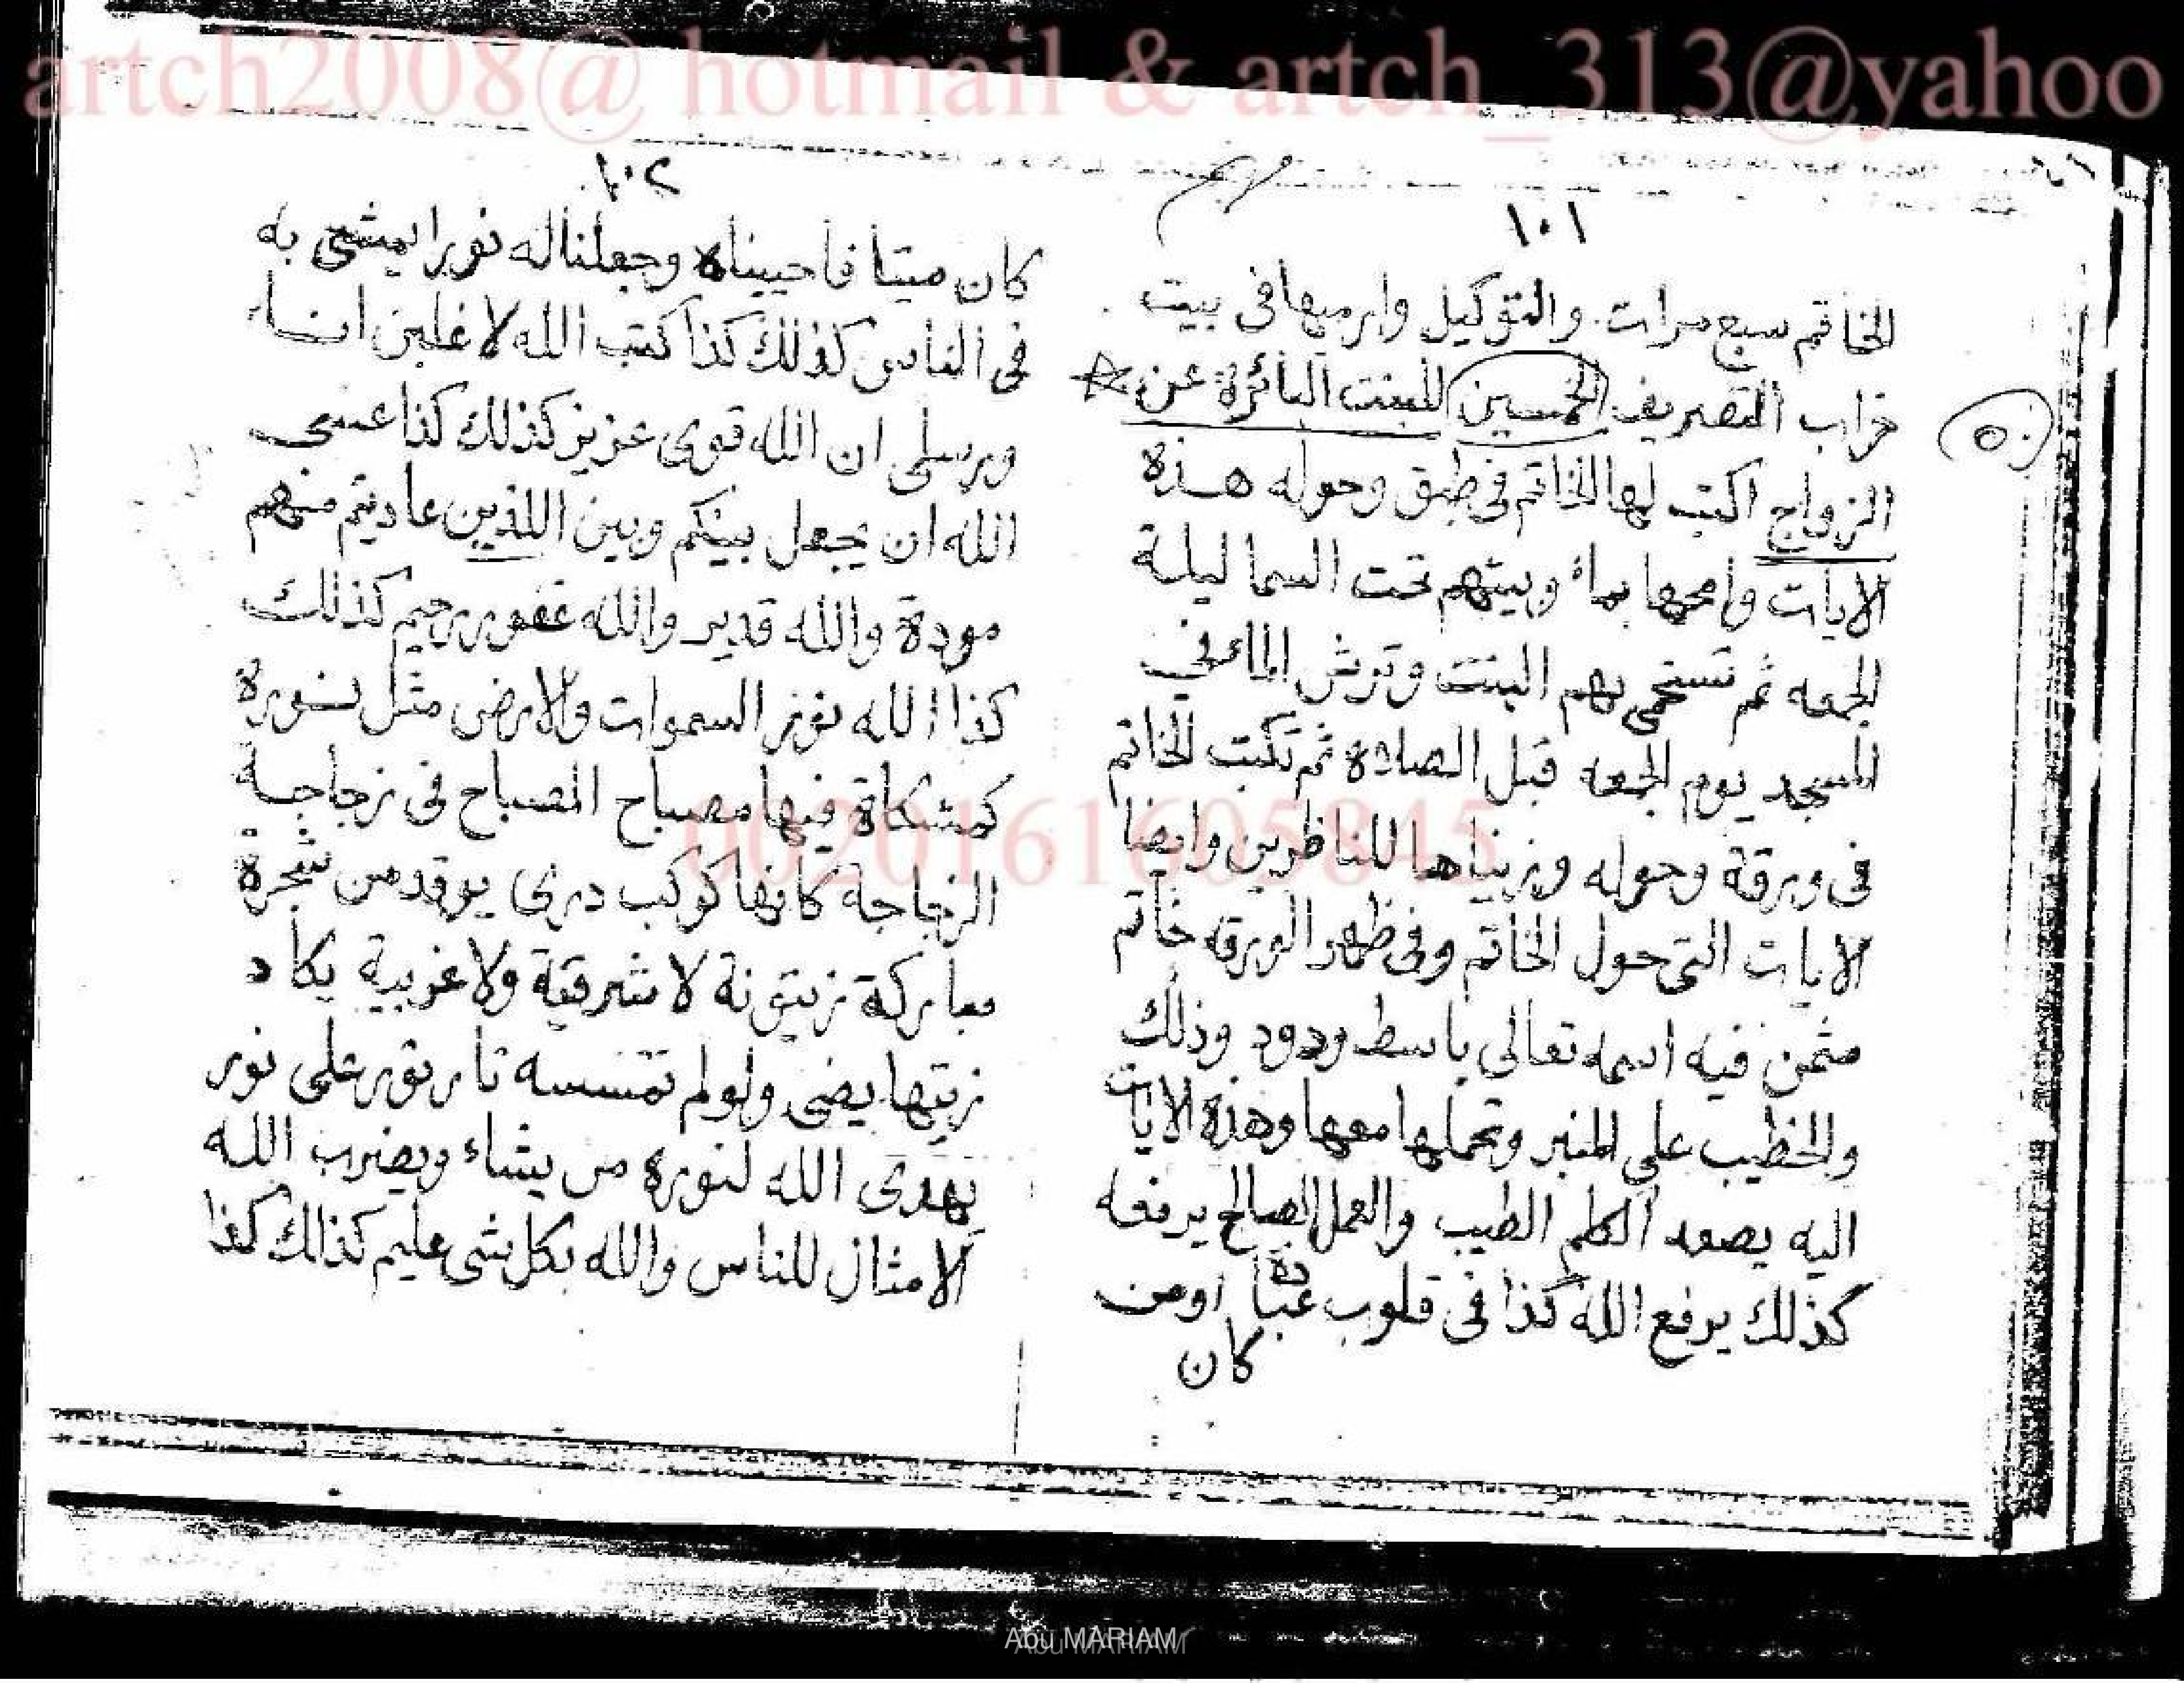 artch2008@ hotmail & artch_313@yahoo
١٠١
الخاتم سبع مرات والتوكيل وارميها فى بيت
خراب التصريف الخمسين للبنت البائرة عن
٥٠
الزواج اكتب لها الخاتم فى طبق وحوله هذه
الايات وامحها بماء وبيتهم تحت السما ليلة
الجمعه ثم تستحمى بهم البنت وترش الماء فى
المسجد يوم الجمعه قبل الصلاة ثم تكتب الخاتم
فى ورقة وحوله وزيناها للناظرين وايضا
الايات التى حول الخاتم وفى ظهر الورقه خاتم
مثمن فيه اسمه تعالى باسط ودود وذلك
والخطيب على المنبر وتحملها معها وهذه الايات
اليه يصعد الكلم الطيب والعمل الصالح يرفعه
كذلك يرفع الله كذا فى قلوب عباده اومن
كان
١٠٢
كان ميتا فاحييناه وجعلنا له نورا يمشى به
فى الناس كذلك كذا كتب الله لاغلبن انا
ورسلى ان الله قوى عزيز كذلك كذا عسى
الله ان يجعل بينكم وبين اللذين عاديتم منهم
مودة والله قدير والله غفور رحيم كذلك
كذا الله نور السموات والارض مثل نوره
كمشكاة فيها مصباح المصباح فى زجاجة
الزجاجة كانها كوكب درى يوقد من شجرة
مباركة زيتونة لا شرقية ولا غربية يكاد
زيتها يضى ولو لم تمسسه نار نور على نور
يهدى الله لنوره من يشاء ويضرب الله
الامثال للناس والله بكل شى عليم كذلك كذا
00201616605845
Abu MARIAM